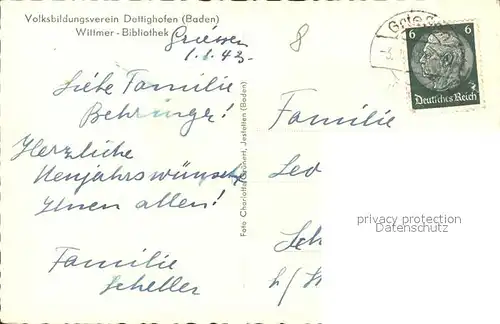 Volksbildungsverein Dettighofen (Baden)
Wittmer-Bibliothek
Griessen
1.1.43.
Liebe Familie
Behringer!
Herzliche
Neujahrswünsche
Ihnen allen!
Familie
Scheller
Foto Charlotte Jestetten (Baden)
8
6 6
Deutsches Reich
Familie
Leo
privacy protection
Datenschutz